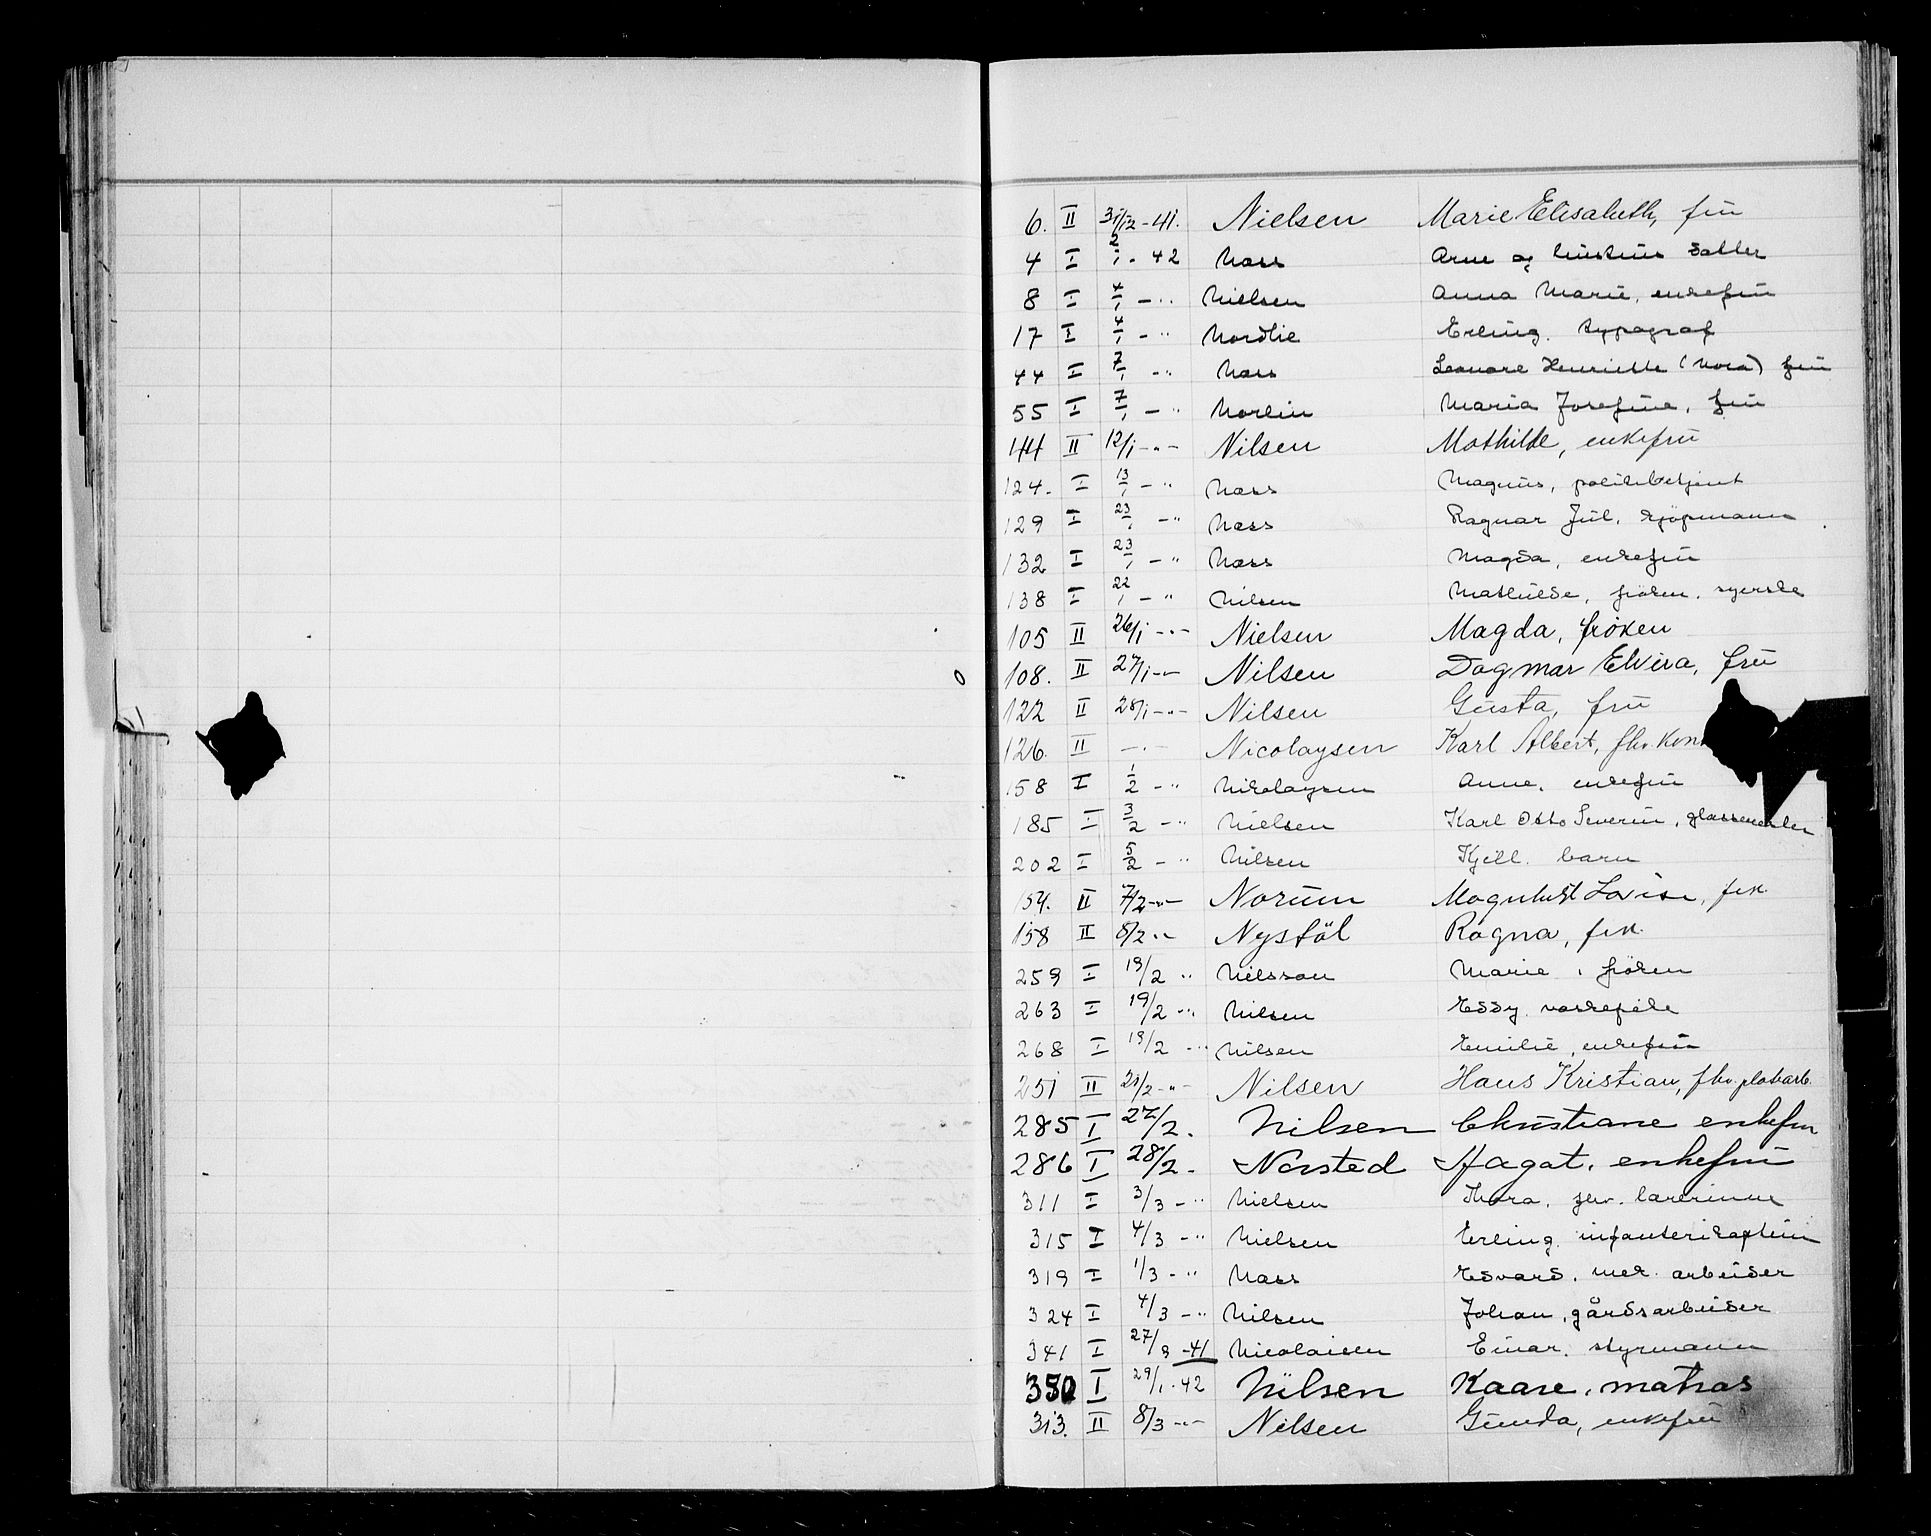 6. II 31/12-41. Nielsen Marie Elisabeth, frü
4 I 2/1 - 42 Næss Arne og Salter
8 I 4/1 - " Nielsen Anna Marie, enkefrü
17 I 4/1 - " Nordlie Erling. typograf
44 I 7/1 - " Næss Leonore Henriette (Nora) frü
55 I 7/1 - " Norlin Maria Josefine, frü
144 II 12/1 - " - Nilsen Mathilde, enkefrü
124. I 13/1 - " Næss Magnus, politibetjent
129 I 23/1 - " Næss Ragnar Jul. kjøpmann
132 I 23/1 - " Næss Magda, enkefrü
138 I 22/1 - " Nilsen Mathilde, frøken, syerske
105 II 26/1 - " - Nielsen Magda, frøken
108. II 27/1 - " - Nilsen Dagmar Elvira, frü
122 II 28/1 - " - Nilsen Güsta, frü
126. II - " - Nicolaysen Karl Albert, fhv. kon
158 I 1/2 - " Nikolaysen Anne, enkefrü
185 I 3/2 - " Nielsen Karl Otto Severin, glassmester
202 I 5/2 - " Nilsen Kjell. barn
154. II 7/2 - " - Norüm Magnhild Lovise, frk.
158 II 8/2 " Nystöl Ragna, frk.
259 I 19/2 " Nilsson Marie, frøken
263 I 19/2 - " Nilsen Eddy, vaskepike
268 I 19/2 - " Nilsen Emilie, enkefrü
251 II 21/2 - " - Nilsen Hans Kristian, fhv. platearb.
285 I 27/2. Nilsen Christiane enkefru
286 I 28/2 - Norsted Aagot, enkefrü
311 I 3/3 - " Nielsen Thora, fhv. lærerinne
315 I 4/3 - " Nielsen Erling. infanterikaptein
319 I 1/3 - " Næss Edvard, mek. arbeider
324 I 4/3 - " Nilsen Johan, gårdsarbeider
341 I 27/8 -41 Nicolaisen Einar, styrmann
350 I 29/1 - 42 Nilsen Kaare, matros
313. II 8/3 - " - Nilsen Günda, enkefrü